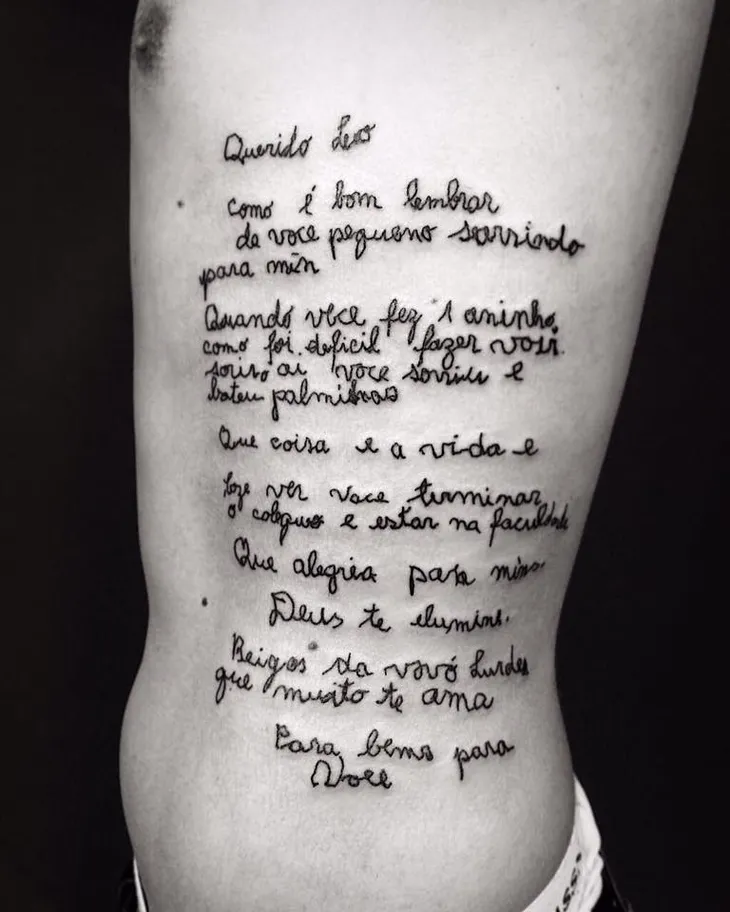 Querido Leo
como é bom lembrar
de voce pequeno sorrindo
para min
Quando voce fez 1 aninho,
como foi deficil fazer voir
soriso ai voce sorriu e
bateu palminhas
Que coisa e a vida e
hoze ver voce terminar
o coleguo e estar na faculdade
Que alegria para min
Deus te elumine.
Beigos da vovó Lurdes
que muito te ama
Para bems para
Voce